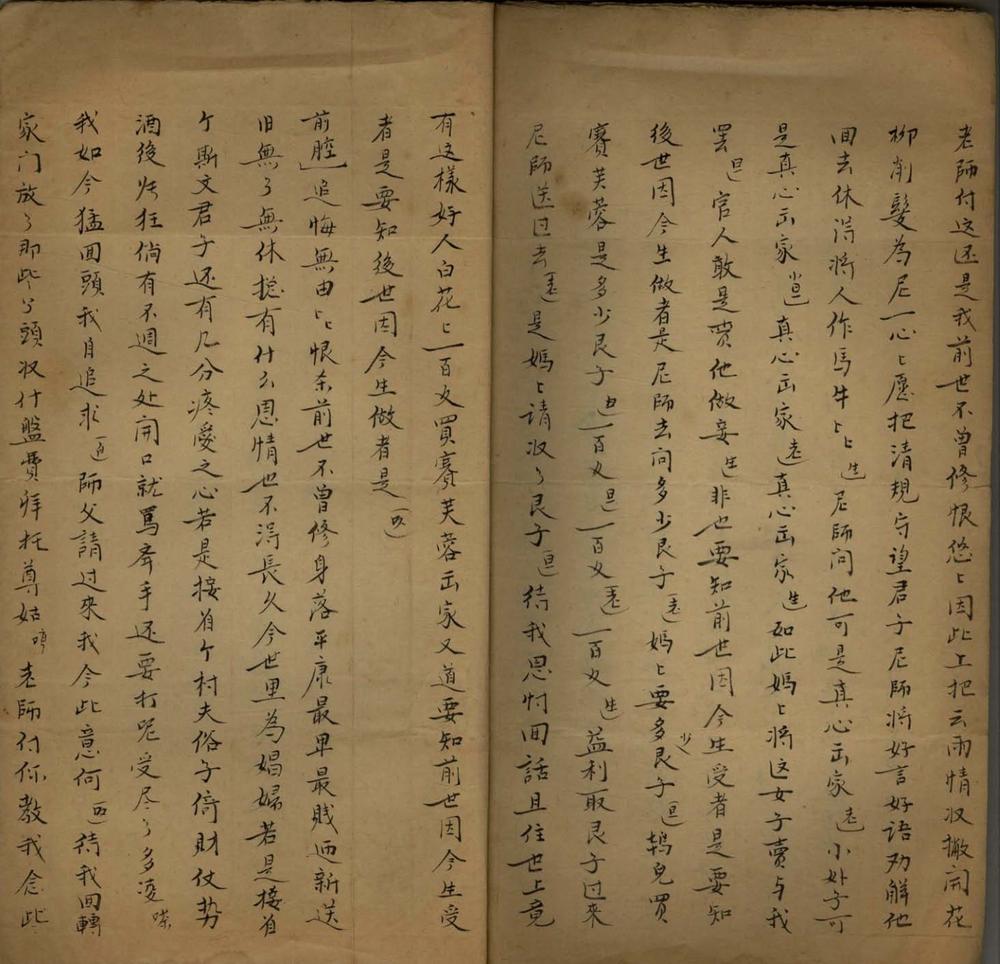 老師付这还是我前世不曾修恨悠〻因此上把云雨情収撇開花
柳削髮為尼一心〻愿把清規守望君子尼師将好言好語劝解他
回去休得将人作馬牛〻〻生尼師问他可是真心出家老小女子可
是真心出家小旦真心出家老真心出家生如此媽〻将这女子賣与我
罢旦官人敢是買他做妾生非也要知前世因今生受者是要知
後世因今生做者是尼師去问多少艮子老媽〻要多少艮子旦鴇兒買
賽芙蓉是多少艮子丑一百文旦一百文老一百文生益利取艮子过来
尼師送过去老是媽〻請収了艮子旦待我思忖回話且住世上竟
有这樣好人白花〻一百文買賽芙蓉出家又道要知前世因今生受
者是要知後世因今生做者是
前腔追悔無由〻〻恨奈前世不曾修身落平康最卑最贱迎新送
旧無了無休挍有什么恩情也不得長久今世里為娼婦若是接着
个斯文君子还有几分疼爱之心若是接着个村夫俗子倚財仗势
酒後发狂倘有不週之处開口就駡牵手还要打呢受尽了多凌
我如今猛回頭我自追求師父請过来我今此意何旦待我回轉
家门放了那些丫頭収什盤費拜托尊姑唱老師付你教我念些